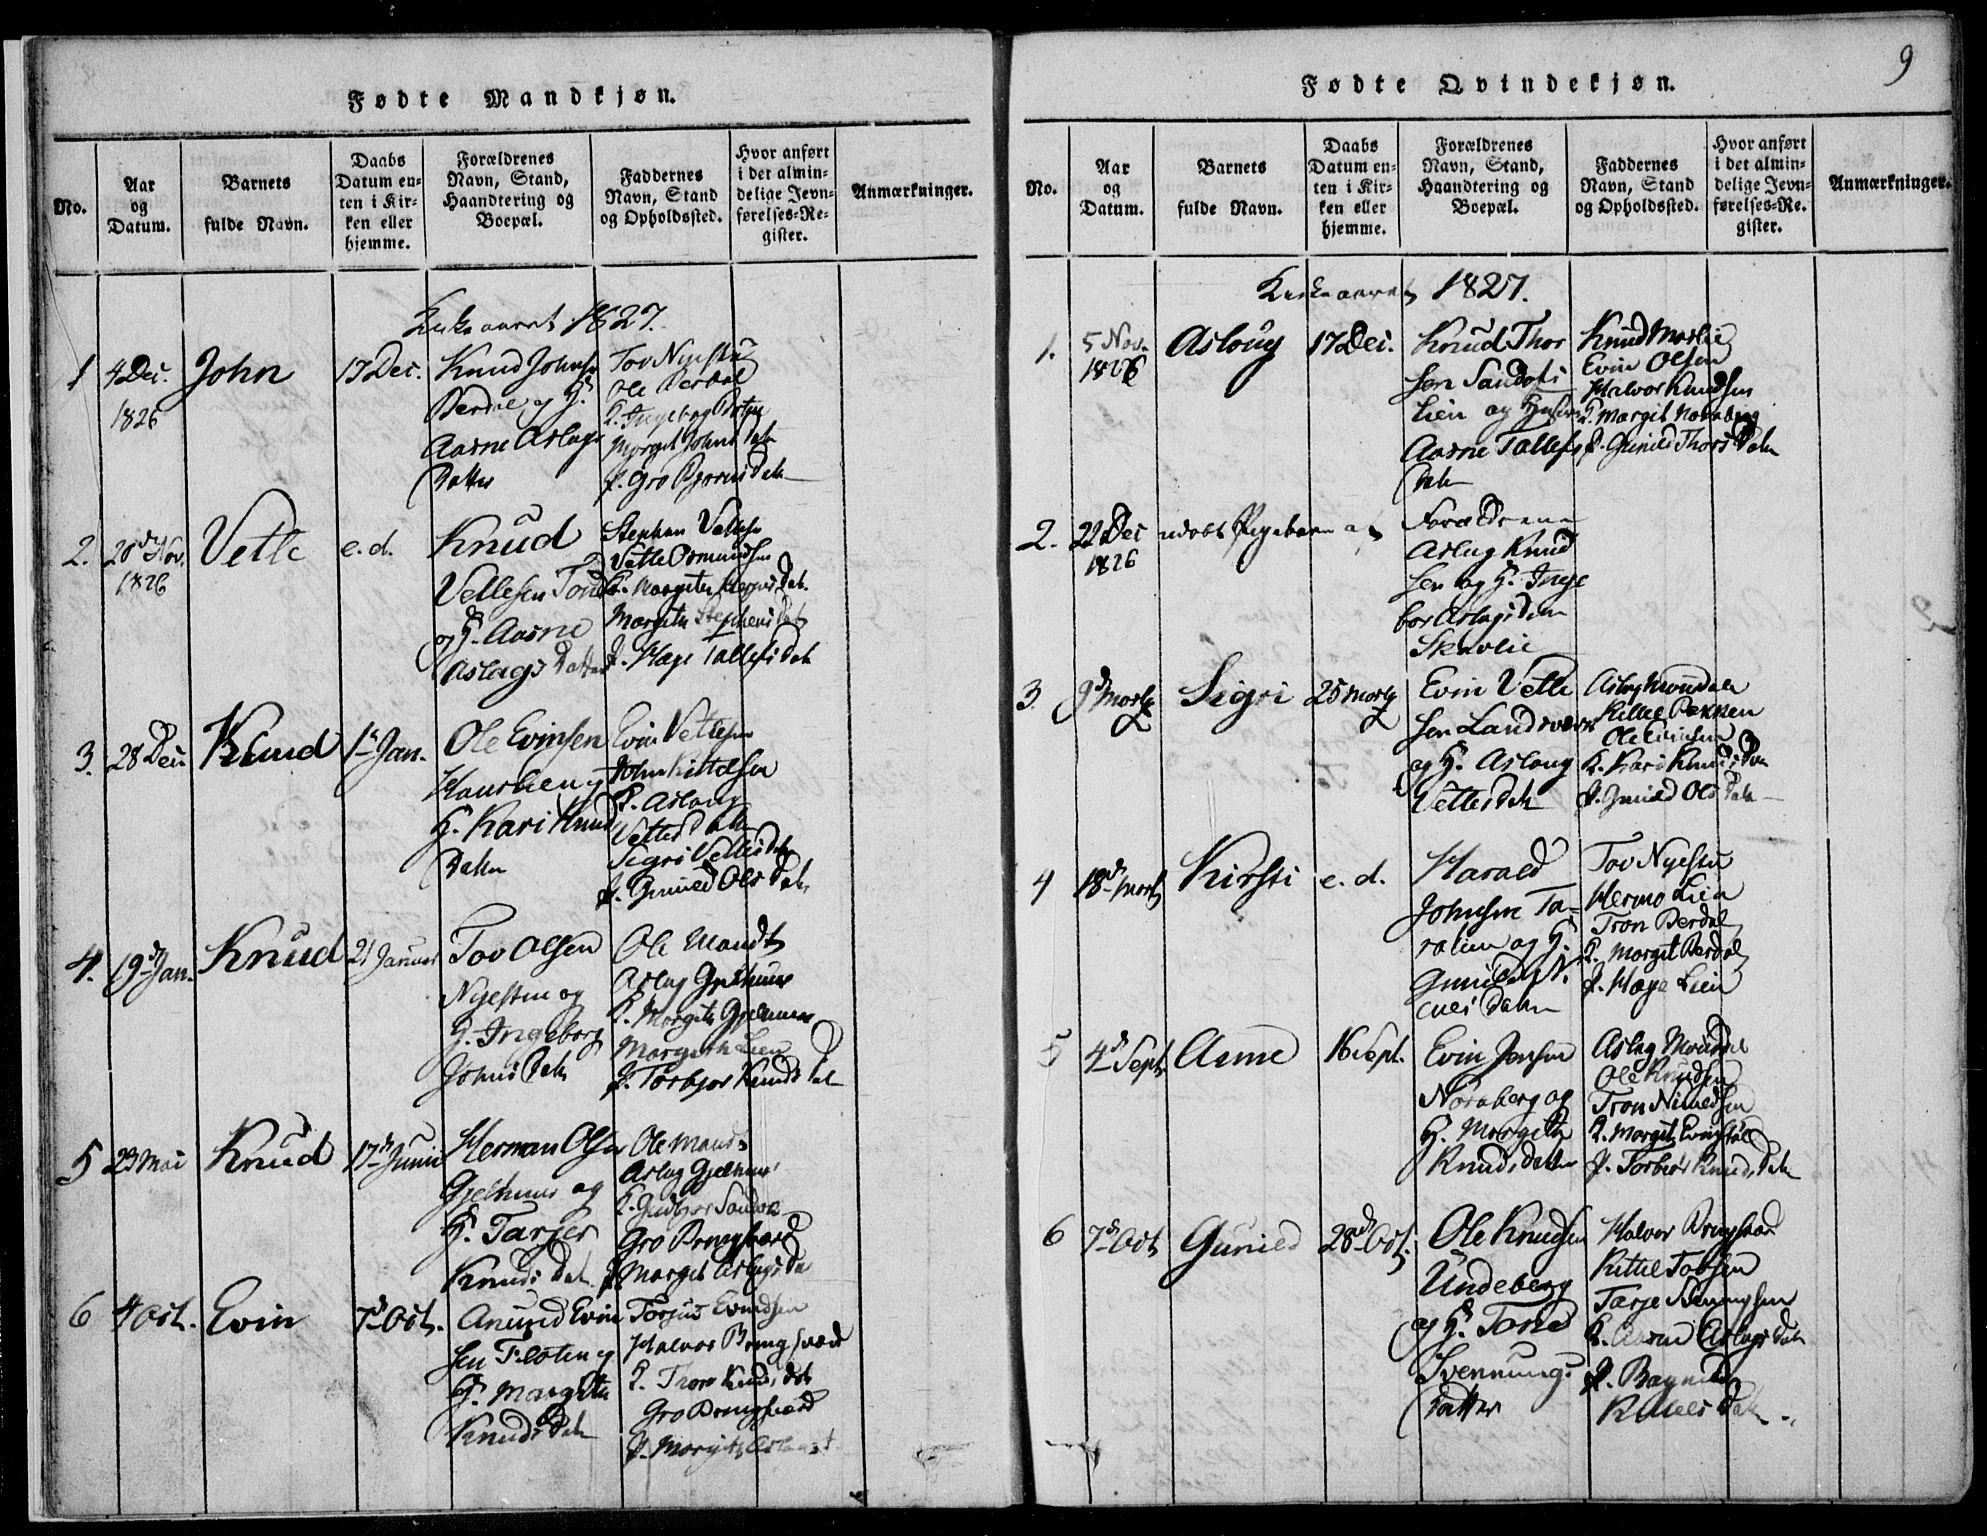 Fødte Mandkjøn.
No.
Aar
og
Datum.
Barnets
fulde Navn.
Daabs
Datum en-
ten i Kir-
ken eller
hjemme.
Forældrenes
Navn, Stand,
Haandtering og
Boepæl.
Faddernes
Navn, Stand
og Opholdssted.
Hvor anført
i det almin-
delige Jevn-
førelses-Re-
gister.
Anmærkninger.
Kirkeaaret 1827.
1
4 Dec.
1826
John
17 Dec.
Knud Johns
Berdal og H.
Aasne Aslags
Datter
Tov Nyestu
Ole Berdal
K. Ingeborg
Morgit Johns Datr
P. Gro Bjørns Datr
2.
28d Nov.
1826
Vetle
e. d.
Knud
Vetlesen
og H. Aasne
Aslags Datter
Stephen Vetles
Vetle Osmundsen
K. Margithe
Margithe Stephens Datr
P. Hæge Tallefs Datr
3.
28 Dec.
Knud
1st Jan.
Ole Evinsen
og
H. Kari Knuds
Datter
Evin Vetlesen
John Kittelsen
K. Aslaug
Vetles Datr
Sigri Vetles Datr
P. Gunild Ols Datr
4.
19d Jan.
Knud
21 Januar
Tov Olsen
Nyestue og
H. Ingeborg
Johns Datr
Ole Mandt
Aslag Gjelhuus
K. Morgith Gjelhuus
Margith Lien
P. Torbjor Knuds Datr
5
23 Mai
Knud
17d Junii
Herman Olsen
Gjelhuus og
H. Tarjer
Knuds Datr
Ole Mandt
Aslag Gjelhuus
K. Gudbjor Sandok
Gro Bringsværd
P. Margit Aslags Da
6
4 Oct.
Evin
7d Oct.
Anund Evin
sen Floten og
H. Margithe
Knuds Datr
Torjus Evindsen
Halvor Bringsværd
K. Thore Knuds Datr
Gro Bringsværd
P. Morgith Aslags
9
Fødte Qvindekjøn.
No.
Aar
og
Datum.
Barnets
fulde Navn.
Daabs
Datum en-
ten i Kir-
ken eller
hjemme.
Forældrenes
Navn, Stand,
Haandtering og
Boepæl.
Faddernes
Navn, Stand
og Opholdssted.
Hvor anført
i det almin-
delige Jevn-
førelses-Re-
gister.
Anmærkninger.
Kirkeaaret 1827.
1.
5 Nov.
1826
Asloug
17 Dec.
Knud Thor
sen Sandoks
Lien og Hustru
Aasne Tallefs
Datr
Knud Morlie
Evin Olsen
Halvor Knudsen
K. Margit Noraberg
P. Gunild Thors Datr
2.
22 Dec
1826
udøbt Pigebarn af
Forældrene
Aslag Knud
sen og H. Inge
bor Aslagsdatr
Skavlie
3.
9d Marts
Sigri
25 Marts
Evin Vetle
sen Landsverk
og H. Aslaug
Vetles Datr
Aslag
Kittel Bekken
Ole Evinsen
K. Kari Knuds Datr
P. Gunild Ols Datr
4
18d Marts
Kirsti
e. d.
Harald
Johnsen Ta-
ralien og H.
Gunild
Datr
Tov Nyestu
Hermo Lien
Tron Berdal
K. Morgit Berdal
P. Hæge Lien
5
4d Sept.
Asne
16 Sept.
Evin Jonsen
Noraberg og
H. Morgith
Knuds datter
Aslag
Ole Knudsen
Tron
K. Morgith
P. Torbjor Knuds Datr
6
7d Oct
Gunild
28d Oct.
Ole Knudsen
Undeberg
og H. Tone
Svennungs
Datter
Halvor Bringsværd
Kittel Tovsen
Tarje Svenningsen
K. Aasne Aslags Datr
P. Ragnild
Datr